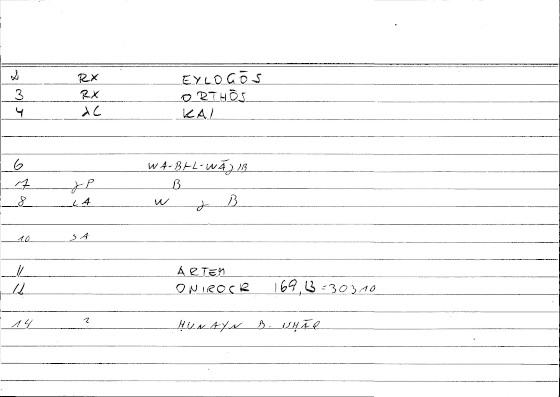 2 RX EYLOGŌS
3 RX ORTHŌS
4 λC KAI
6 WA-BI-L-WĀJIB
7 JP B
8 LA W J B
10 SA
11 ARTEM
12 ONIROCR 169,13=303,10
14 ? ḤUNAYN B. ISḤĀQ